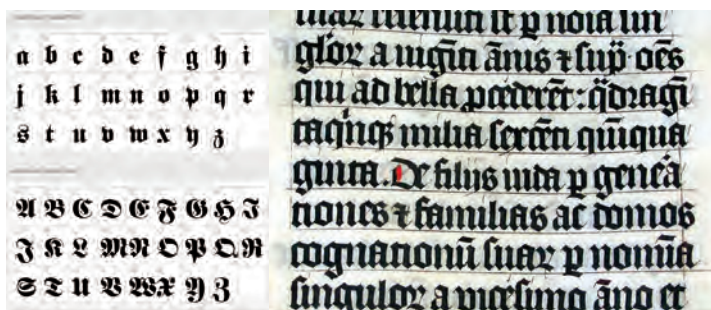 a b c d e f g h i
j k l m n o p q r
s t u v w x y z
A B C D E F G H I
J K L M N O P Q R
S T U V W X Y Z
p noīa sin
gloꝝ a uiginti ānis ⁊ sup̄ oēs
qui ad bella ꝓcederēt : q̄dragī
taqinqꝫ milia sexcēti quīqua
ginta. De filijs iuda p genea
tiones ⁊ familias ac domos
cognationū suaꝝ p nomīa
singuloꝝ a vicesimo āno et